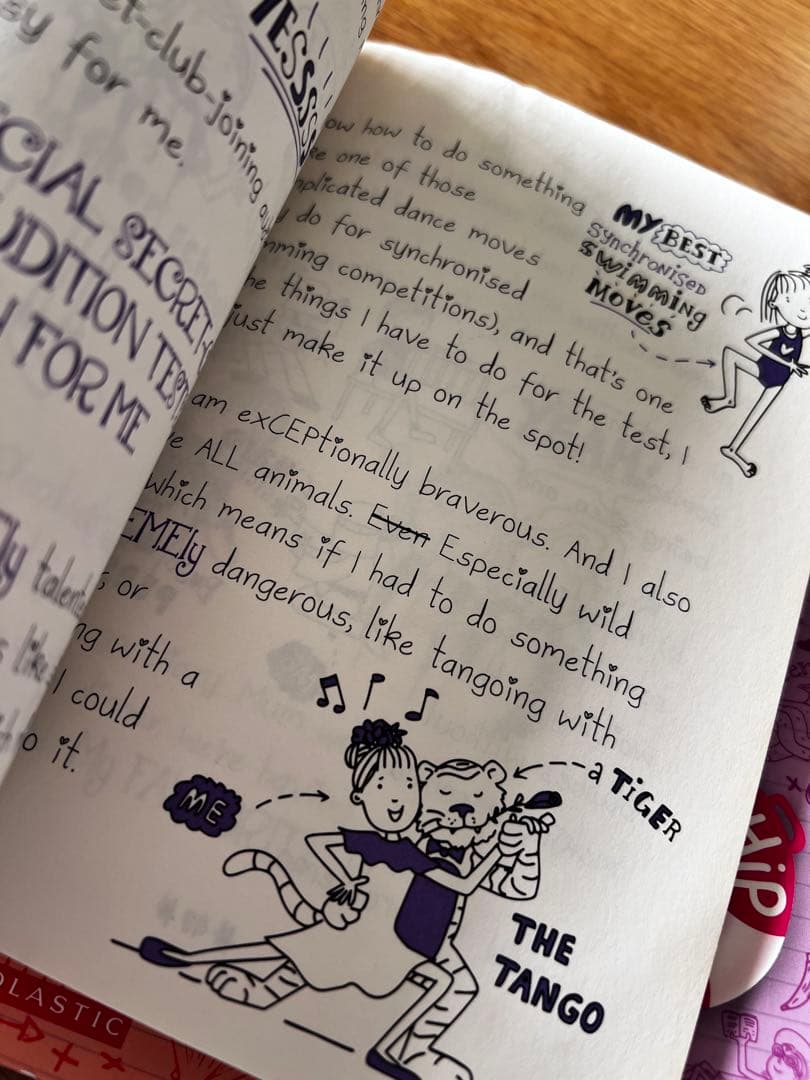 et-club-joining
sy for me.
YESSSS
CIAL SECRET-
UDITION TEST
FOR ME
ly talente
s like
ow how to do something
one of those
mplicated dance moves
do for synchronised
mming competitions), and that's one
he things I have to do for the test, I
just make it up on the spot!
MY BEST
SYNCHRONISED
SWIMMING
MOVES
am exCEPtionally braverous. And I also
e ALL animals. Even Especially wild
which means if I had to do something
EMEly dangerous, like tangoing with
s or
ng with a
I could
o it.
ME
a TiGER
THE
TANGO
OLASTIC
HiP